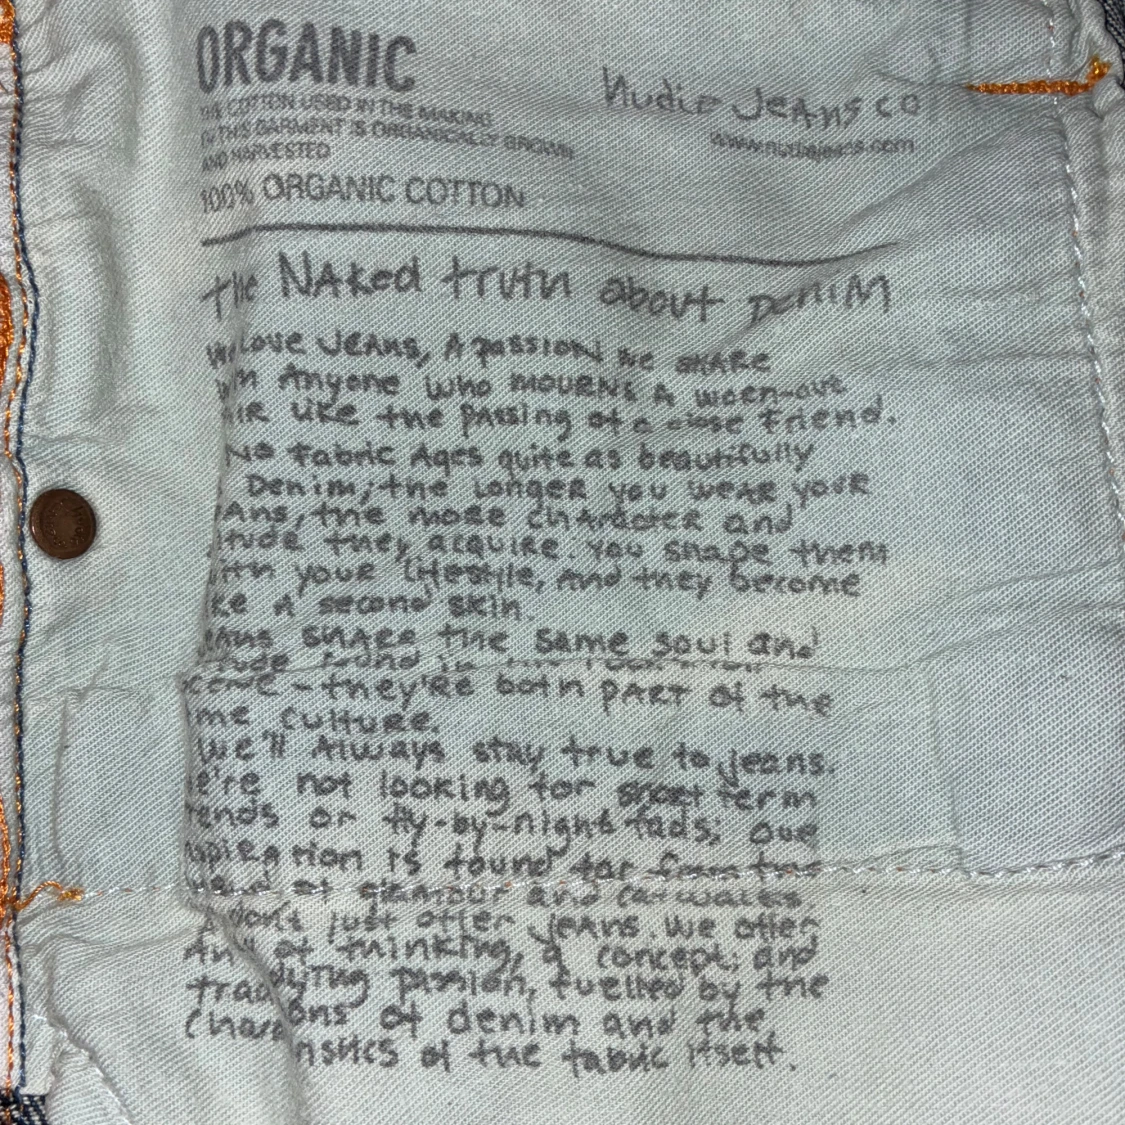 ORGANIC
THE COTTON USED IN THE MAKING
OF THIS GARMENT IS ORGANICALLY GROWN
AND HARVESTED
100% ORGANIC COTTON
Nudie Jeans co
www.nudiejeans.com
the NAKed truth about DENIM
We Love JEANS, A passion we SHARE
Anyone who MOURNS A worn-out
AIR LIKE the PAssing of a close Friend.
No fabric Ages quite as beautifully
Denim; the Longer you wear your
EANS, the more character and
itude they acquire. You shape them
ith your lifestyle, and they become
ke A second skin.
eans share the same soul and
tude found in
- they're both PART of the
me culture.
We'll Always stay true to jeans.
e're not looking for short term
ends or fly-by-night fads; our
spiration is found far from the
of glamour and catwalks
don't just offer jeans. We offer
of thinking, a concept; and
dying passion, fuelled by the
trad ons of denim and the
Char ristics of the fabric itself.